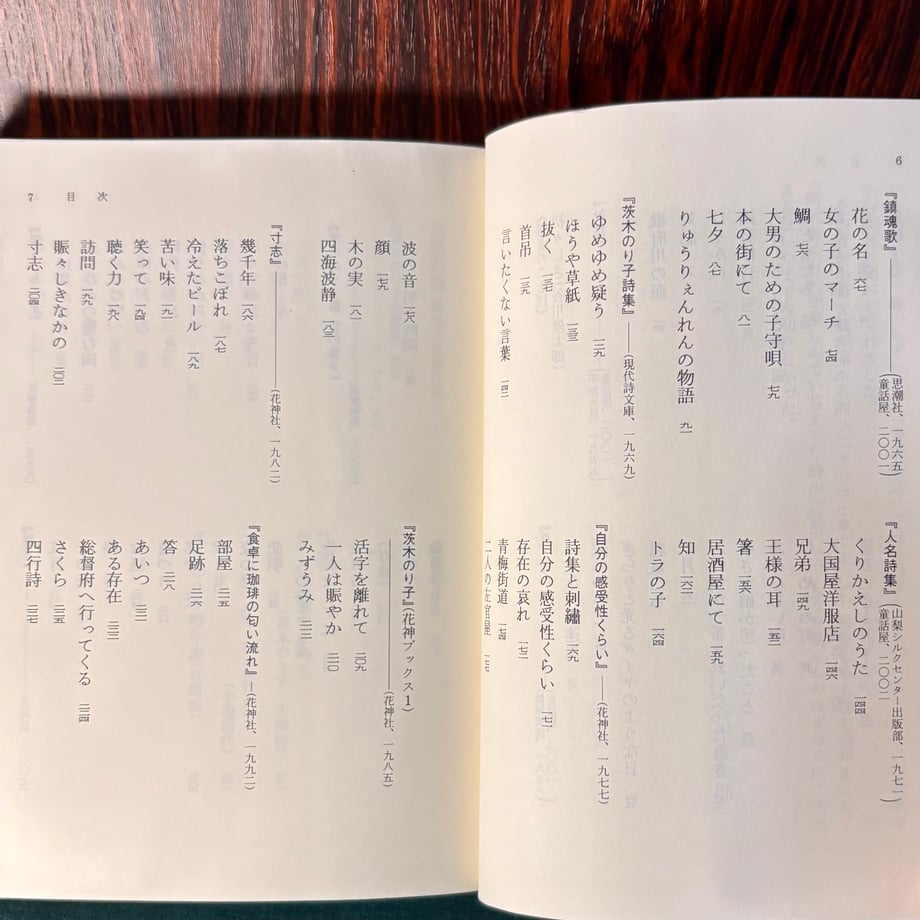 6
『鎮魂歌』――(思潮社、一九六五/童話屋、二〇〇一)
花の名 六七
女の子のマーチ 七四
鯛 七六
大男のための子守唄 七九
本の街にて 八一
七夕 八七
りゅうりぇんれんの物語 九一
『茨木のり子詩集』――(現代詩文庫、一九六九)
ゆめゆめ疑う 一二九
ほうや草紙 一三三
抜く 一三七
首吊 一三九
言いたくない言葉 一四二
『人名詩集』――(山梨シルクセンター出版部、一九七一/童話屋、二〇〇二)
くりかえしのうた 一四四
大国屋洋服店 一四六
兄弟 一四九
王様の耳 一五二
箸 一五六
居酒屋にて 一五九
知 一六二
トラの子 一六四
『自分の感受性くらい』――(花神社、一九七七)
詩集と刺繍 一六九
自分の感受性くらい 一七一
存在の哀れ 一七三
青梅街道 一七四
二人の左官屋 一七七
7 目次
波の音 一七八
顔 一七九
木の実 一八一
四海波静 一八三
『寸志』――(花神社、一九八二)
幾千年 一八六
落ちこぼれ 一八七
冷えたビール 一八九
苦い味 一九一
笑って 一九四
聴く力 一九六
訪問 一九九
賑々しきなかの 二〇二
寸志 二〇四
『茨木のり子』(花神ブックス1)
――(花神社、一九八五)
活字を離れて 二〇九
一人は賑やか 二一〇
みずうみ 二一三
『食卓に珈琲の匂い流れ』―(花神社、一九九二)
部屋 二一五
足跡 二一六
答 二一八
あいつ
ある存在
総督府へ行ってくる 二二四
さくら 二二五
四行詩 二二七